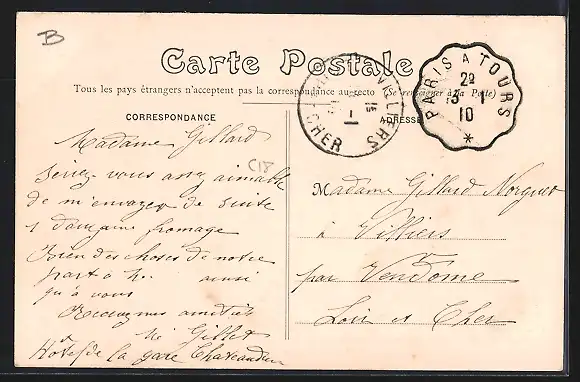 B
Carte Postale
Tous les pays étrangers n'acceptent pas la correspondance au recto (Se renseigner à la Poste)
CORRESPONDANCE
ADRESSE
VILLIERS
CHER
PARIS A TOURS
2º
3-1
10
*
C18
Madame Gillard
Seriez-vous assez aimable
de m'envoyer de suite
1 douzaine fromage
Bien des choses de notre
part à ainsi
qu'à vous
Recevez mes amitiés
Gillet
Hotel de la gare Chateaudun
Madame Gillard Norguet
à Villiers
par Vendome
Loir et Cher